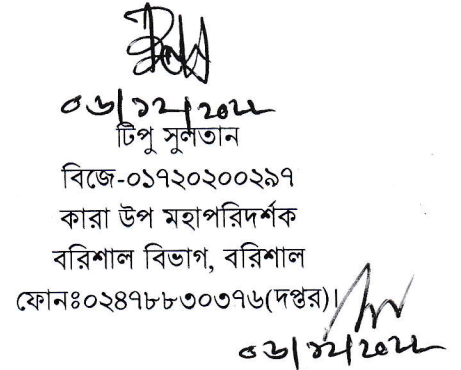 ০৬/১২/২০২২
টিপু সুলতান
বিজে-০১৭২০২০০২৯৭
কারা উপ মহাপরিদর্শক
বরিশাল বিভাগ, বরিশাল
ফোনঃ০২৪৭৮৮৩০৩৭৬(দপ্তর)।
০৬/১২/২০২২